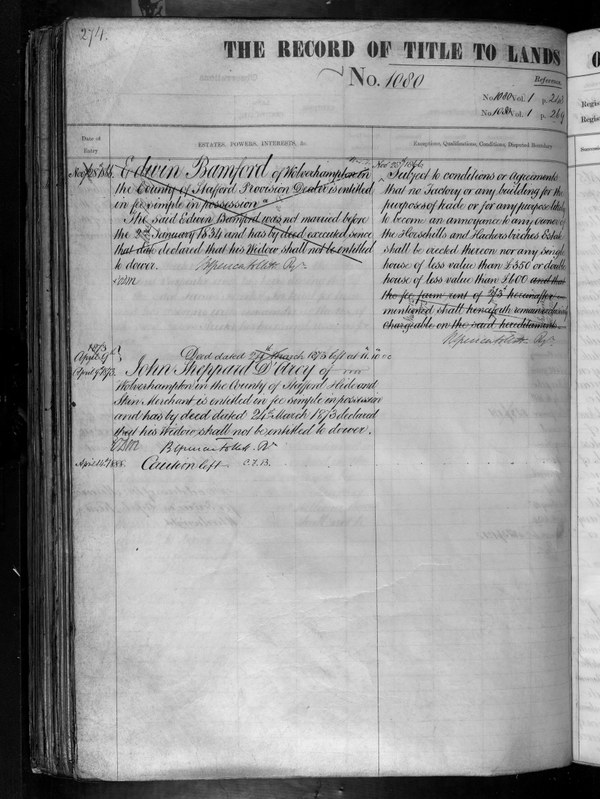 274.
THE RECORD OF TITLE TO LANDS
No. 1080
Reference
No. 1080 Vol. 1 p. 268
No. 1080 Vol. 1 p. 269
Date of
Entry
ESTATES, POWERS, INTERESTS, &c.
Exceptions, Qualifications, Conditions, Disputed Boundary
Nov 28th 1866. Edwin Bamford of Wolverhampton in
the County of Stafford Provision Dealer is entitled
in fee simple in possession.
The said Edwin Bamford was not married before
the 2nd January 1834 and has by deed executed since
that date declared that his Widow shall not be entitled
to dower. B Spencer Follett Rr.
Nov 28th 1866.
Subject to conditions or Agreements
that no Factory or any building for the
purposes of trade or for any purpose likely
to become an annoyance to any owner of
the Households and Hackers briches Estate
shall be erected thereon nor any single
house of less value than £350 or double
house of less value than £600 and that
the fee farm rent of hereinafter
mentioned shall henceforth remain
chargeable on the said hereditaments.
B Spencer Follett Rr.
1873
April 9th
April 9th 1873.
Deed dated 24th March 1873 left at 11. 10
John Sheppard D'Arcy of
Wolverhampton in the County of Stafford Hide and
Skin Merchant is entitled in fee simple in possession
and has by deed dated 24th March 1873 declared
that his Widow shall not be entitled to dower.
B Spencer Follett Rr.
April 16th 1888. Caution left C.F.B.
O
Regist
Regist